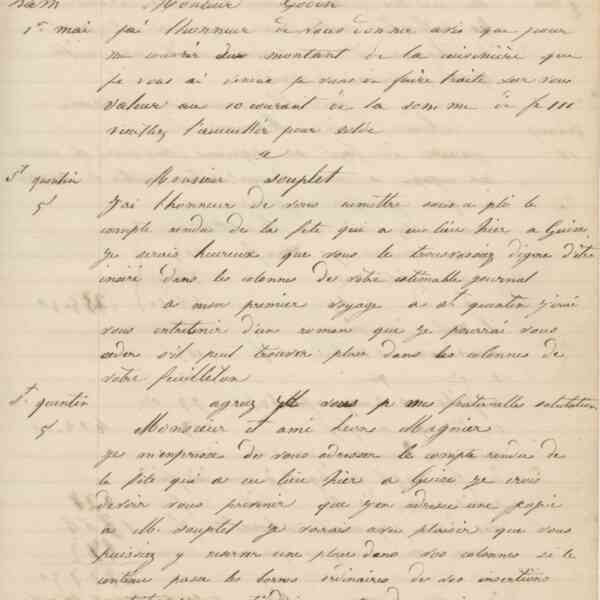 Ham Monsieur Godin
1er mai j'ai l'honneur de vous donner avis que pour
me couvrir du montant de la cuisinière que
je vous ai vendue je viens de faire traite sur vous
valeur au 10 courant de la somme de f 111
veuillez l'accueillir pour solde
St quentin Monsieur Souplet
5 J'ai l'honneur de vous remettre sous ce pli le
compte rendu de la fete qui a eu lieu hier a Guise
je serais heureux que vous le trouvassiez digne d'être
inséré dans les colonnes de votre estimable journal
a mon premier voyage a St quentin j'irai
vous entretenir d'un roman que je pourrai vous
céder s'il peut trouver place dans les colonnes de
votre feuilleton
agréez je vous p mes fraternelles salutations
St quentin
5 Monsieur et ami Leon Magnier
je m'empresse de vous adresser le compte rendu de
la fete qui a eu lieu hier a Guise je crois
devoir vous prévenir que j'en adresse une copie
a M. Souplet je verais avec plaisir que vous
puissiez y réserver une place dans vos colonnes si le
contenu passe les bornes ordinaires de vos insertions